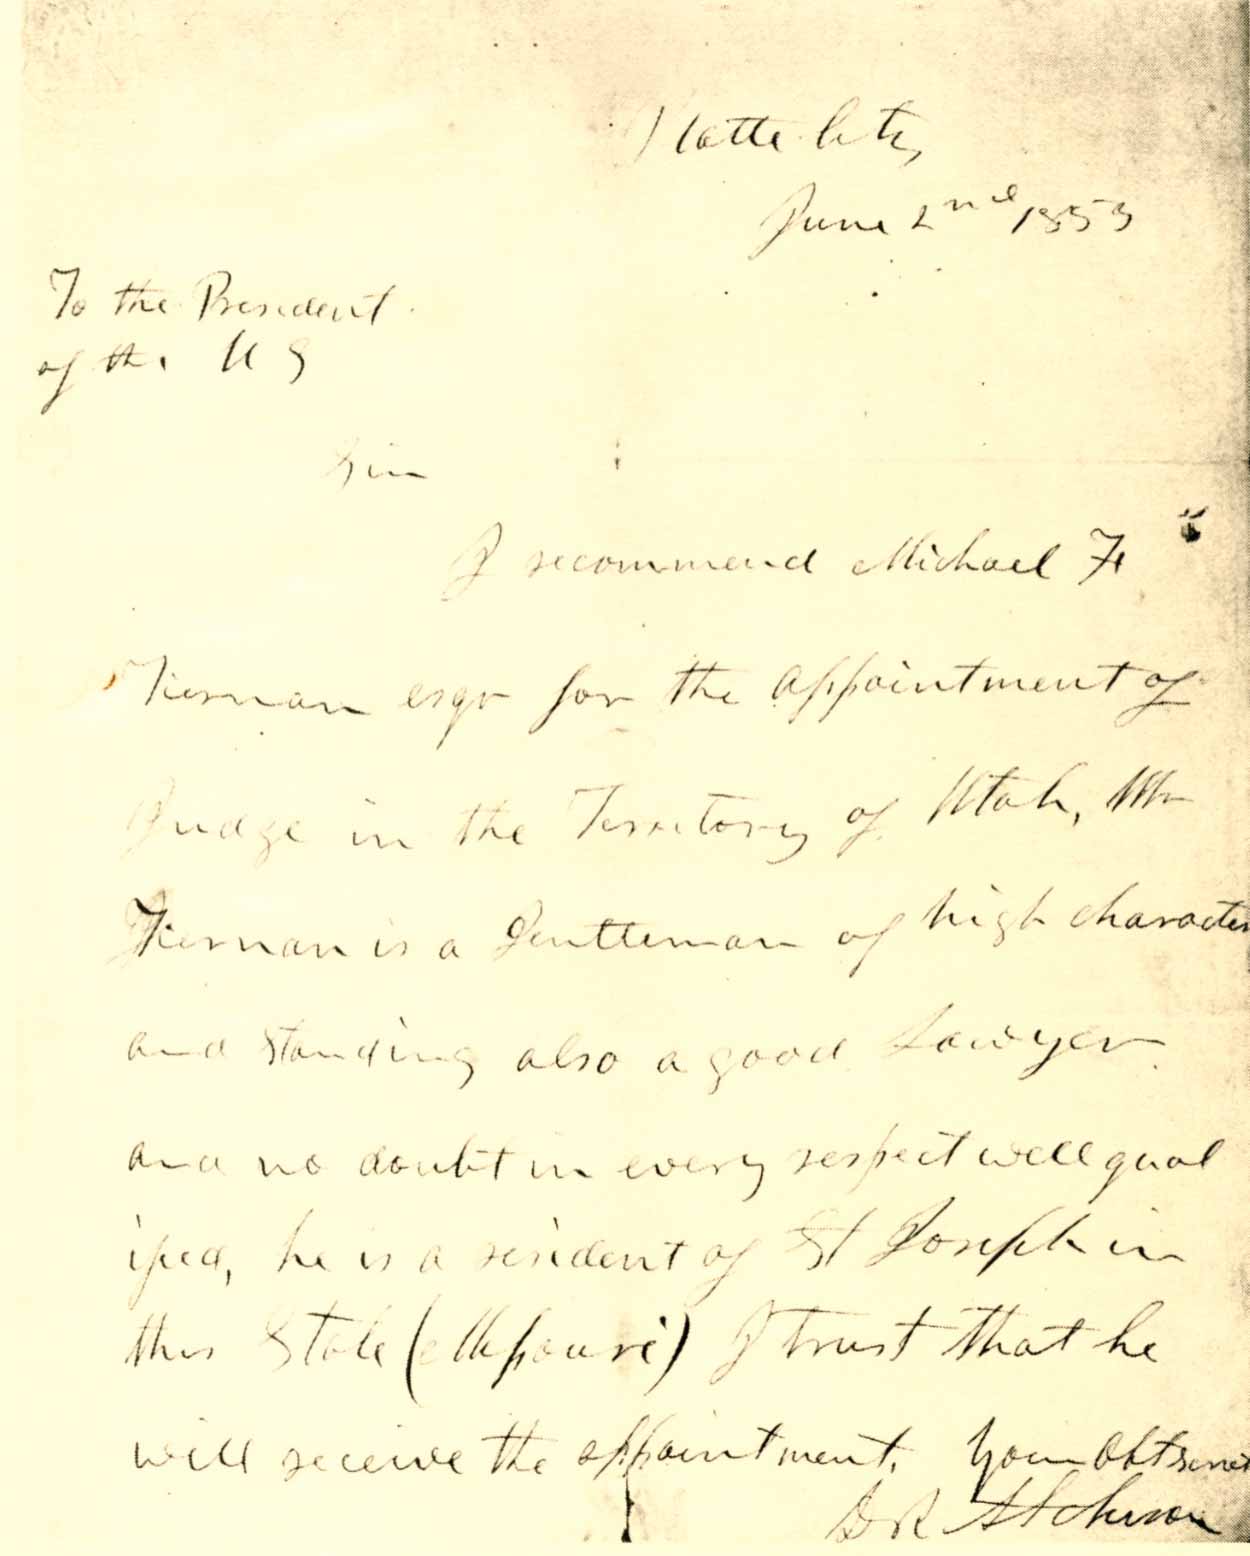 Platte City
June 2nd 1853
To the President
of the U S
Sir
I recommend Michael F
Tiernan esqr for the appointment of
Judge in the Territory of Utah, Mr
Tiernan is a Gentleman of high character
and standing also a good Lawyer
and no doubt in every respect well qual
ified, he is a resident of St Joseph in
this State (Missouri) I trust that he
will receive the appointment. Your Obt servt
D R Atchison